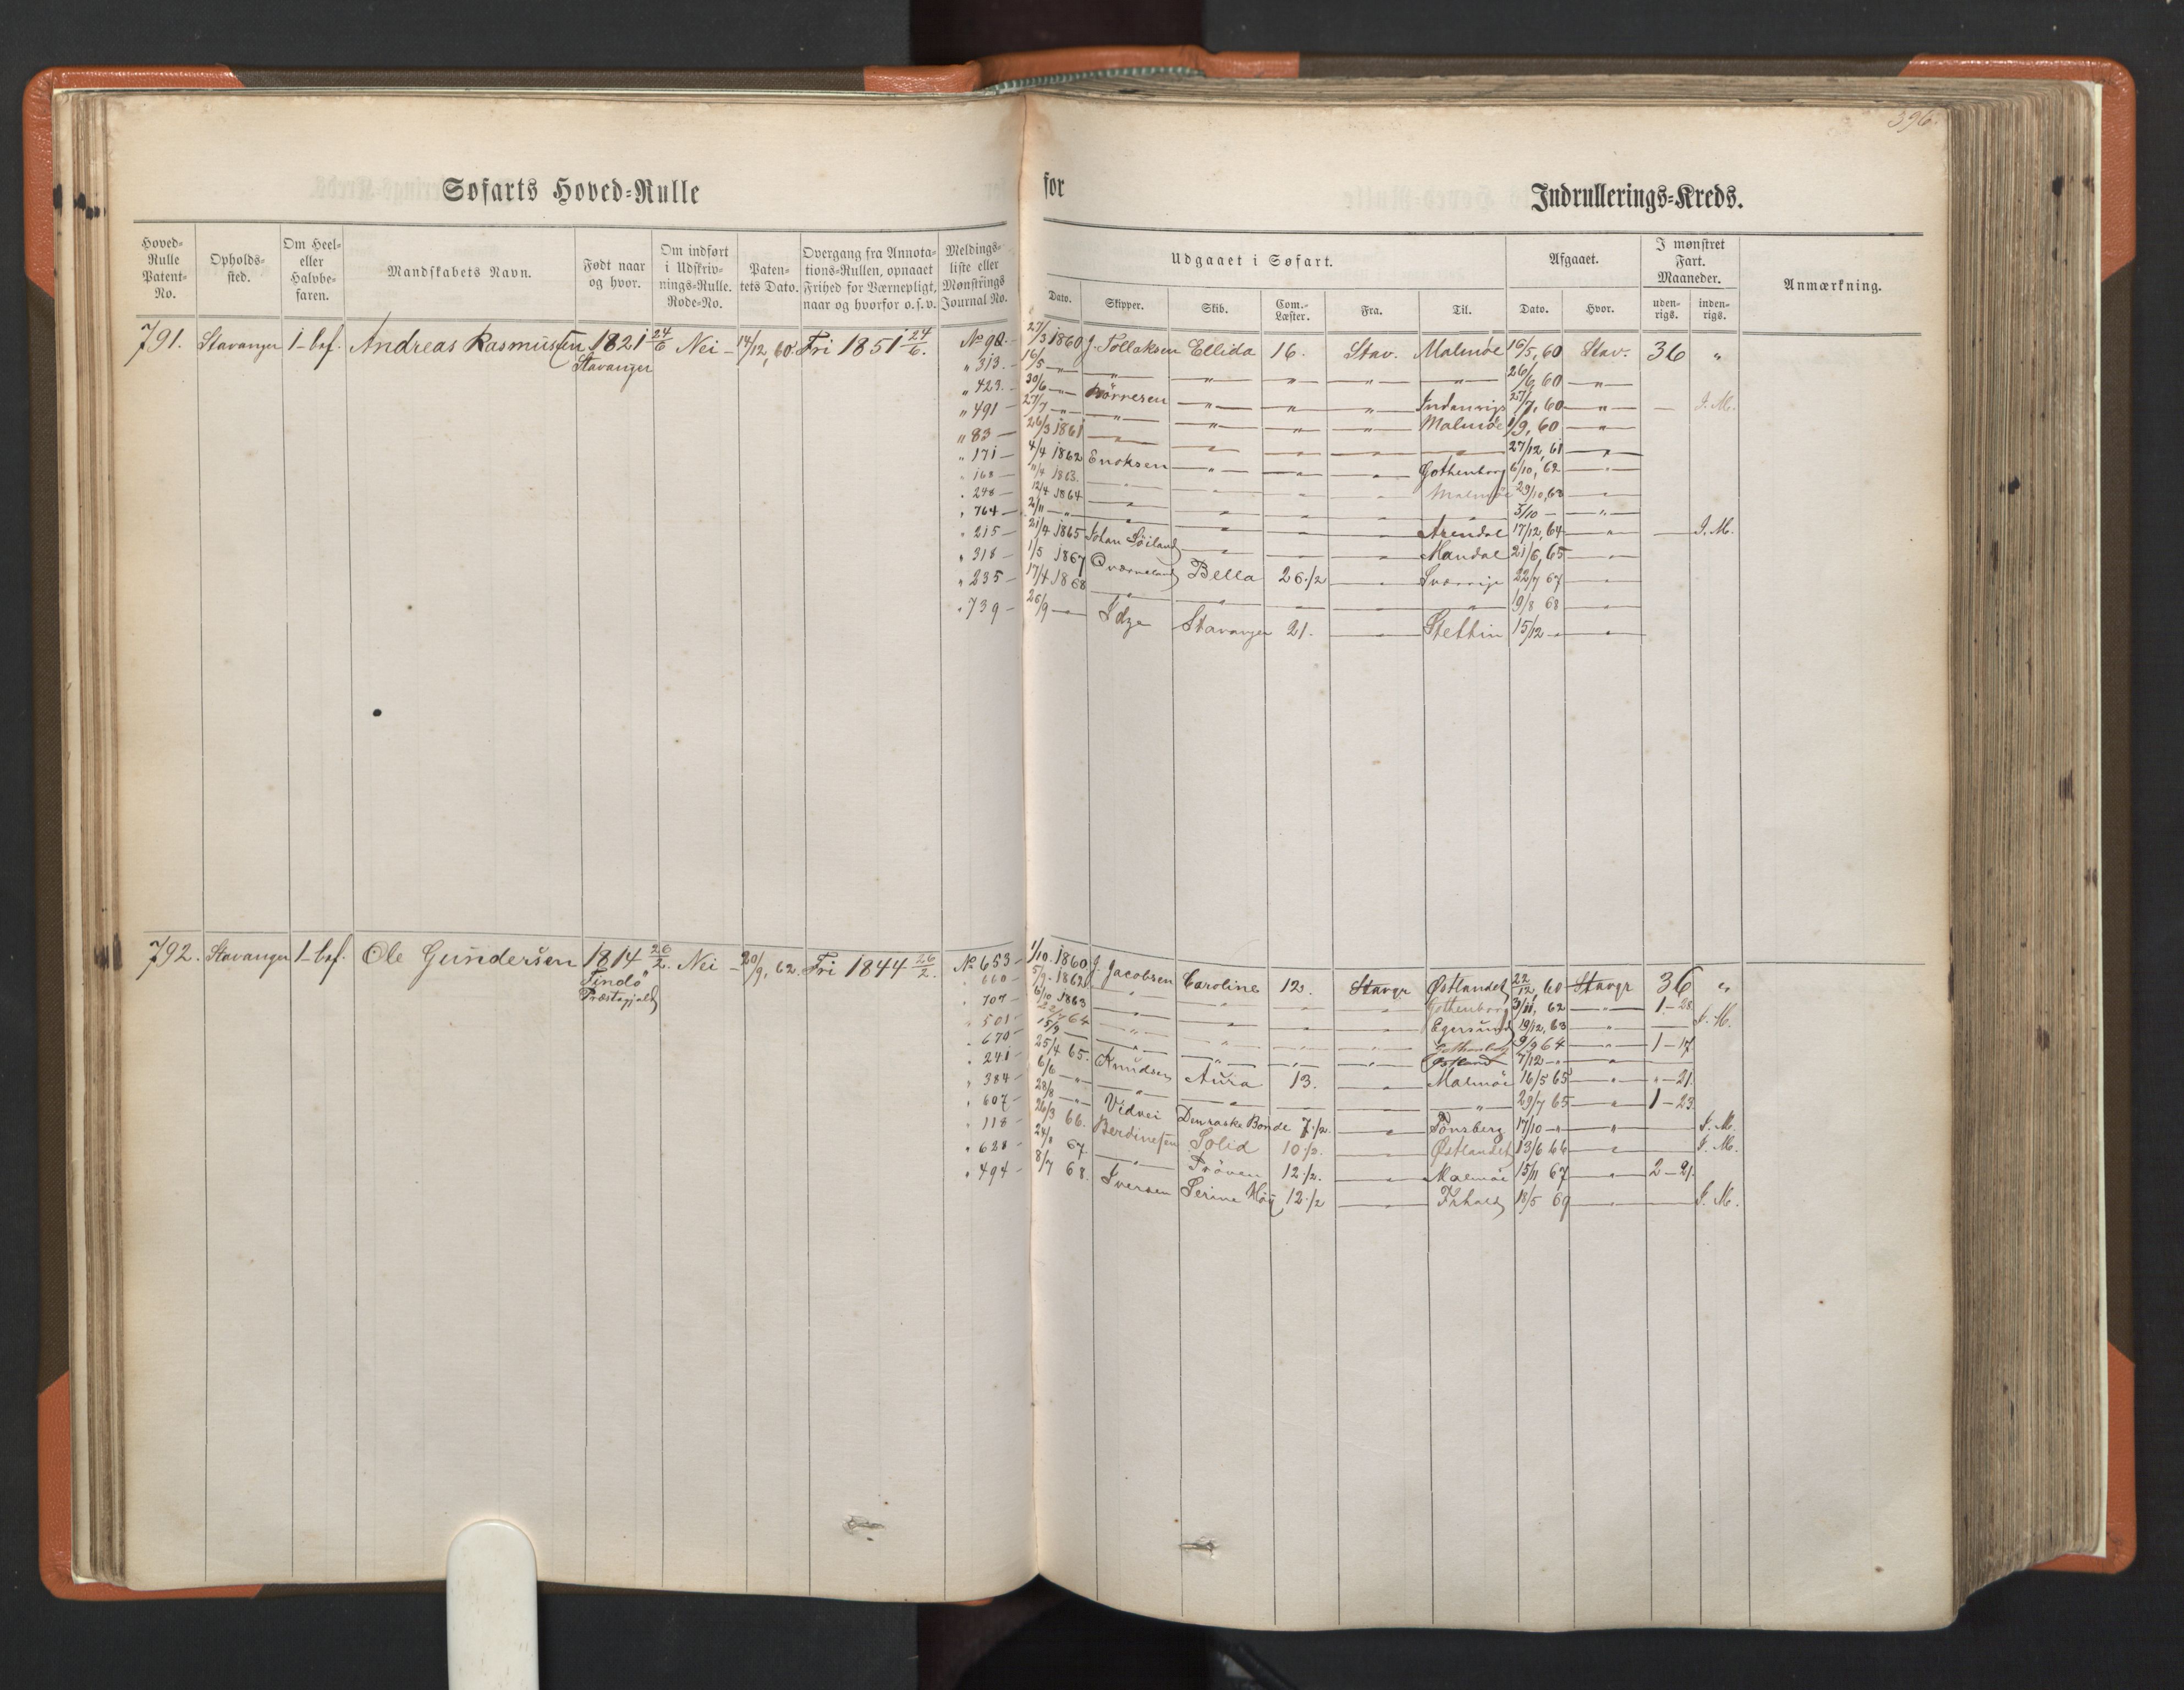 396.
Søfarts Hoved-Rulle for Indrullerings-Kreds.
Hoved-Rulle Patent-No. Opholds-sted. Om Heel- eller Halvbe-faren. Mandskabets Navn. Født naar og hvor. Om indført i Udskriv-nings-Rulle. Rode-No. Paten-tets Dato. Overgang fra Annota-tions-Rullen, opnaaet Frihed for Værnepligt, naar og hvorfor o.s.v. Meldings-liste eller Mønstrings Journal No. Udgaaet i Søfart. Afgaaet. I mønstret Fart. Maaneder. Anmærkning.
Dato. Skipper. Skib. Com.-Læster. Fra. Til. Dato. Hvor. uden-rigs. inden-rigs.
791. Stavanger 1-bef. Andreas Rasmussen 1821 24/6 Nei - 14/12, 60. Fri 1851 24/6. No 90. 27/3 1860 J. Tollaksen Ellida 16. Stav. Malmöe 16/5, 60 Stav. 36 "
Stavanger " 313. - 16/5 - " - - " - - " - - " - - " - - " - 26/6, 60 - " -
" 423. - 30/6 - " - Börresen - " - - " - - " - Indenrigs 27/7, 60 - " - - I. M.
" 491 - 27/7 - " - - " - - " - - " - - " - Malmöe 1/9, 60 - " -
" 83 - 26/3 1861 - " - - " - - " - - " - - " - 27/12, 61 - " -
" 171 - 4/4 1862 Enoksen - " - - " - - " - Gothenborg 6/10, 62 - " -
" 168 - 11/4 1863. - " - - " - - " - - " - Malmöe 29/10, 63 - " -
" 248 - 12/4 1864 - " - - " - - " - - " - - " - 3/10 - - " -
" 764 - 2/11 - " - - " - - " - - " - - " - Arendal 17/12, 64 - " - - I. M.
" 215 - 21/4 1865 Johan Söiland - " - - " - - " - Mandal 21/6, 65 - " -
" 318 - 1/5 1867 Qværneland Bella 26 1/2 - " - Sværrige 22/7 67 - " -
" 235 - 17/4 1868 - " - - " - - " - - " - - " - 19/8 68 - " -
" 739 - 26/9 - " - Idge Stavanger 21. - " - Stettin 15/12 - " - - " -
792. Stavanger 1-bef. Ole Gundersen 1814 26/2. Nei - 20/9, 62. Fri 1844 26/2. No 653 - 1/10. 1860 J. Jacobsen Caroline 12. Stavgr Østlandet 22/12, 60 Stavgr 36 "
Findö Præstegjeld " 660 - 5/9. 1862 - " - - " - - " - - " - Gothenborg 3/11, 62 - " - 1-28
" 707 - 6/10 1863 - " - - " - - " - - " - Egersund 19/12, 63 - " - - I. M.
" 501 - 22/7 64 - " - - " - - " - - " - Gothenborg 9/9 64 - " - 1-17
" 670 - 15/9 - - " - - " - - " - - " - Østland 7/12 - " - - " -
" 241 - 25/4 65. Knudsen Aura 13. - " - Malmöe 16/5 65 - " - " - 21.
" 384 - 6/6 - " - - " - - " - - " - - " - - " - 29/7 65 - " - 1-23
" 607 - 28/8 - " - Vidnei Den raske Bonde 7 1/2. - " - Tönsberg 17/10 - " - - " - I. M.
" 118 - 26/3 66. Berdinesen Solid 10 1/2. - " - Østlandet 13/6 66 - " - I. M.
" 628 - 24/8 67. - " - Pröven 12 1/2. - " - Malmöe 15/11 67 - " - 2-21
" 494 - 8/7 68. Iversen Serine 12 1/2 - " - 18/5 69 - " - I. M.